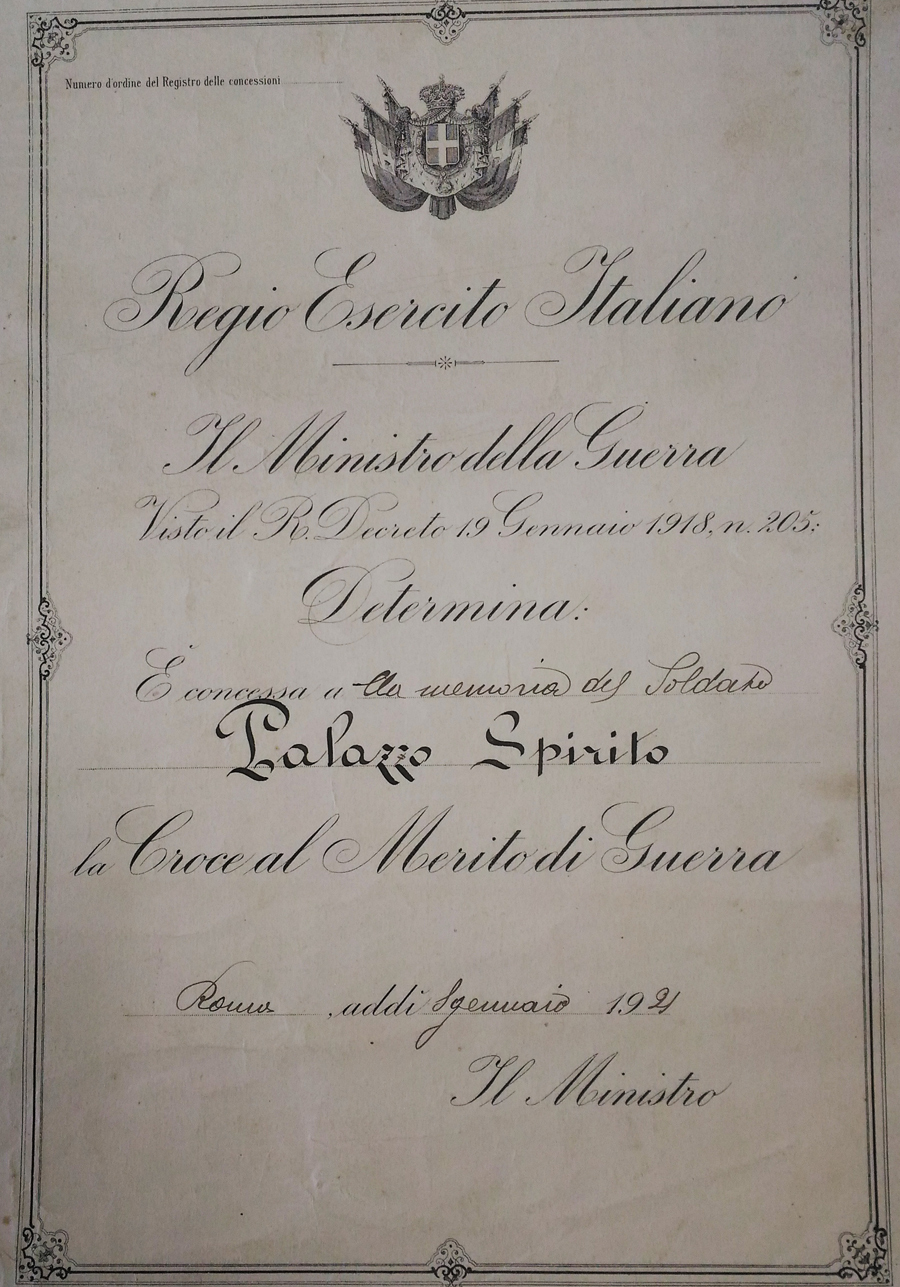 Numero d'ordine del Registro delle concessioni
Regio Esercito Italiano
Il Ministro della Guerra
Visto il R. Decreto 19 Gennaio 1918, n. 205:
Determina:
È concessa alla memoria del Soldato
Palazzo Spirito
la Croce al Merito di Guerra
Roma, addì 8 gennaio 1921
Il Ministro